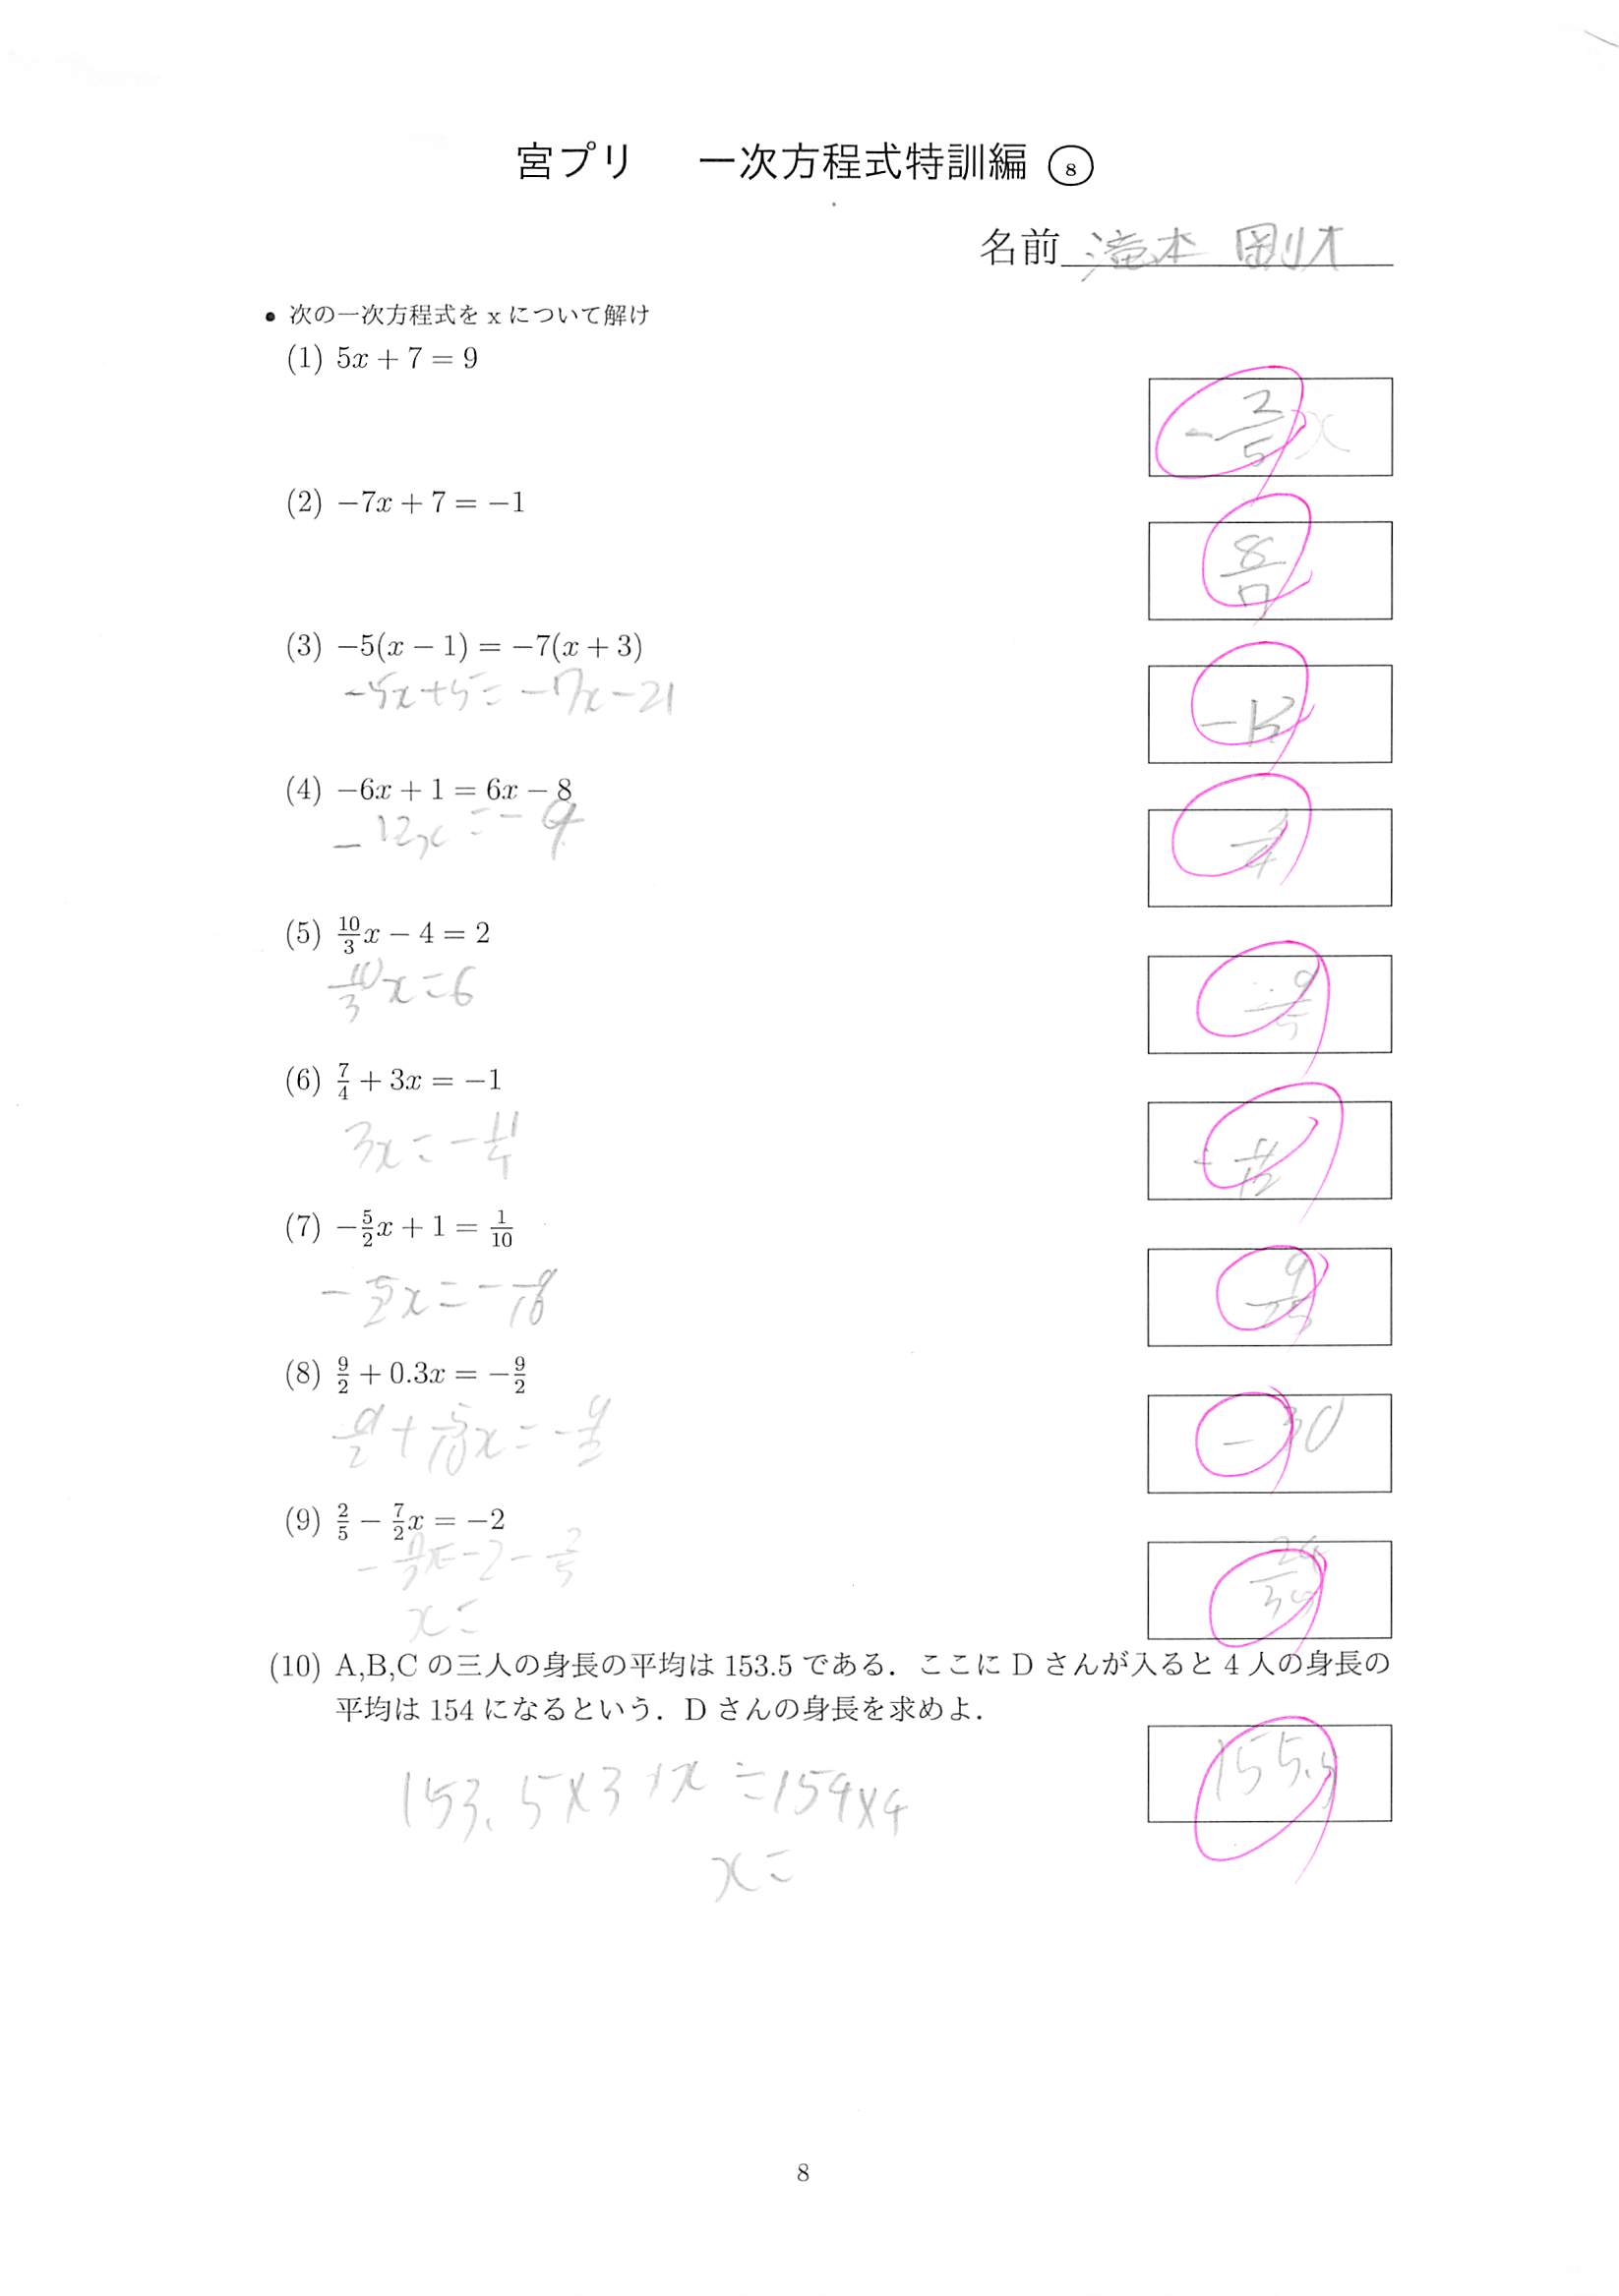 宮プリ 一次方程式特訓編 ⑧
名前 滝本 剛才
• 次の一次方程式を x について解け
(1) 5x + 7 = 9
-2/5 x
(2) −7x + 7 = −1
8/7
(3) −5(x − 1) = −7(x + 3)
-5x+5=-7x-21
(4) −6x + 1 = 6x − 8
-12x=-9
(5) 10/3 x − 4 = 2
10/3 x=6
9/5
(6) 7/4 + 3x = −1
3x=-11/4
-11/12
(7) −5/2 x + 1 = 1/10
-5/2 x=-9/10
9/25
(8) 9/2 + 0.3x = −9/2
-30
(9) 2/5 − 7/2 x = −2
-7/2 x=-2-2/5
24/35
x=
(10) A,B,C の三人の身長の平均は 153.5 である．ここに D さんが入ると 4 人の身長の
平均は 154 になるという．D さんの身長を求めよ．
155.5
153.5×3+x=154×4
x=
8